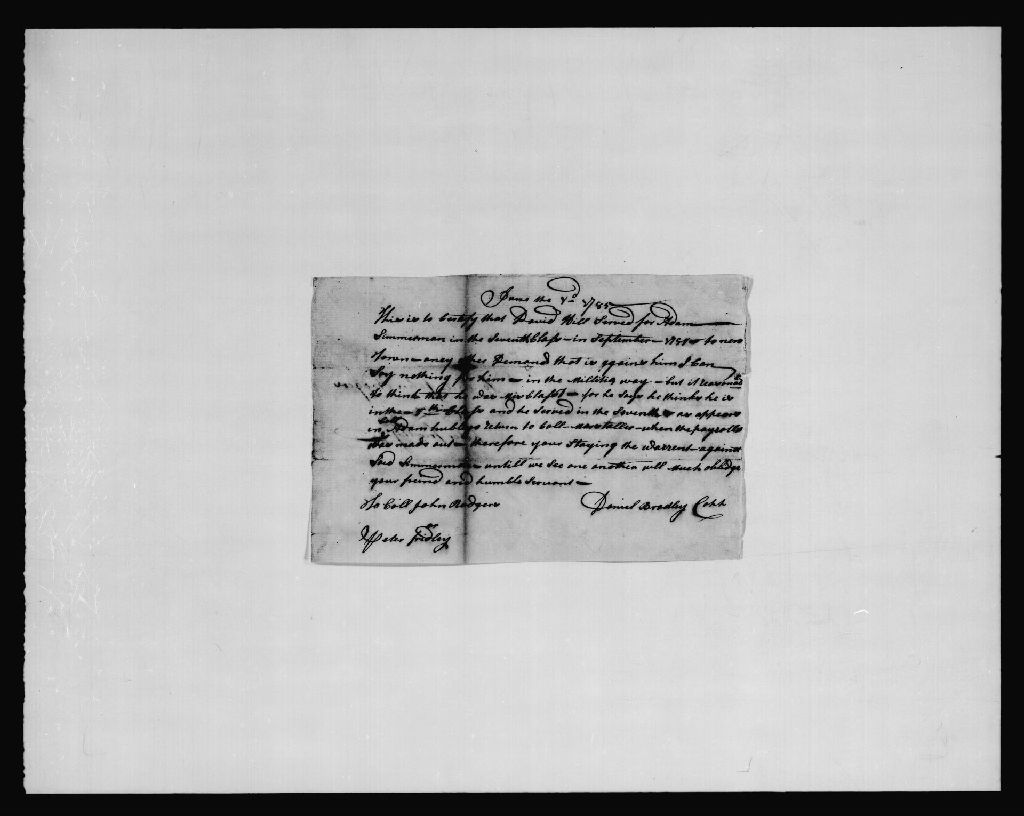 June the 8th 1785
This is to Certify that David Hill Served for Adam
Simmerman in the Seventh Class in September 1781 to new
Town aney other Demand that is against him I Can
Say nothing for him in the Militia way but it
to think that he was Class for he Says he thinks he is
in the Class and he Served in the Seventh as appears
in Adam return to Coll when the payrolls
was made out therefore your Staying the warrent against
Said Simmerman untill we See one another will Much oblidge
your freind and humble Servant
To Coll John Rodgers
Daniel Bradley
Peter Fridley